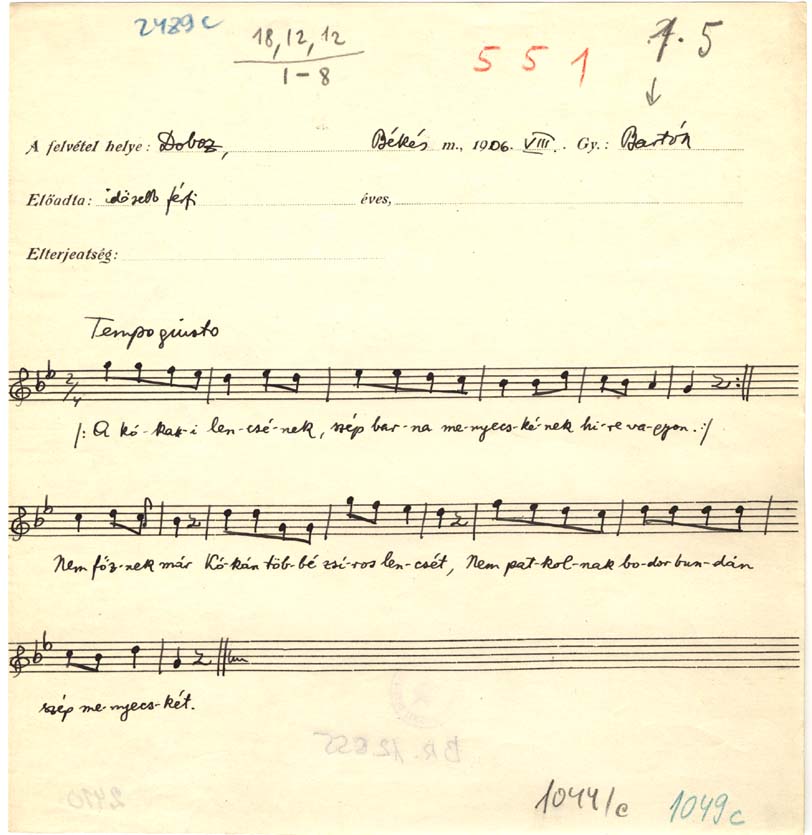 2489c
18, 12, 12
1-8
551
5
A felvétel helye: Doboz, Békés m., 1906. VIII. Gy.: Bartók
Előadta: idősebb férfi éves,
Elterjeatség:
Tempo giusto
2/4
/: A kó-kai-i len-csé-nek, szép bar-na me-nyecs-ké-nek hi-re va-gyon. :/
Nem főz-nek már Kó-kán töb-bé zsí-ros len-csét, Nem pat-kol-nak bo-dor bun-dán
szép me-nyecs-két.
BR. 12855
2410
1044/c 1049c